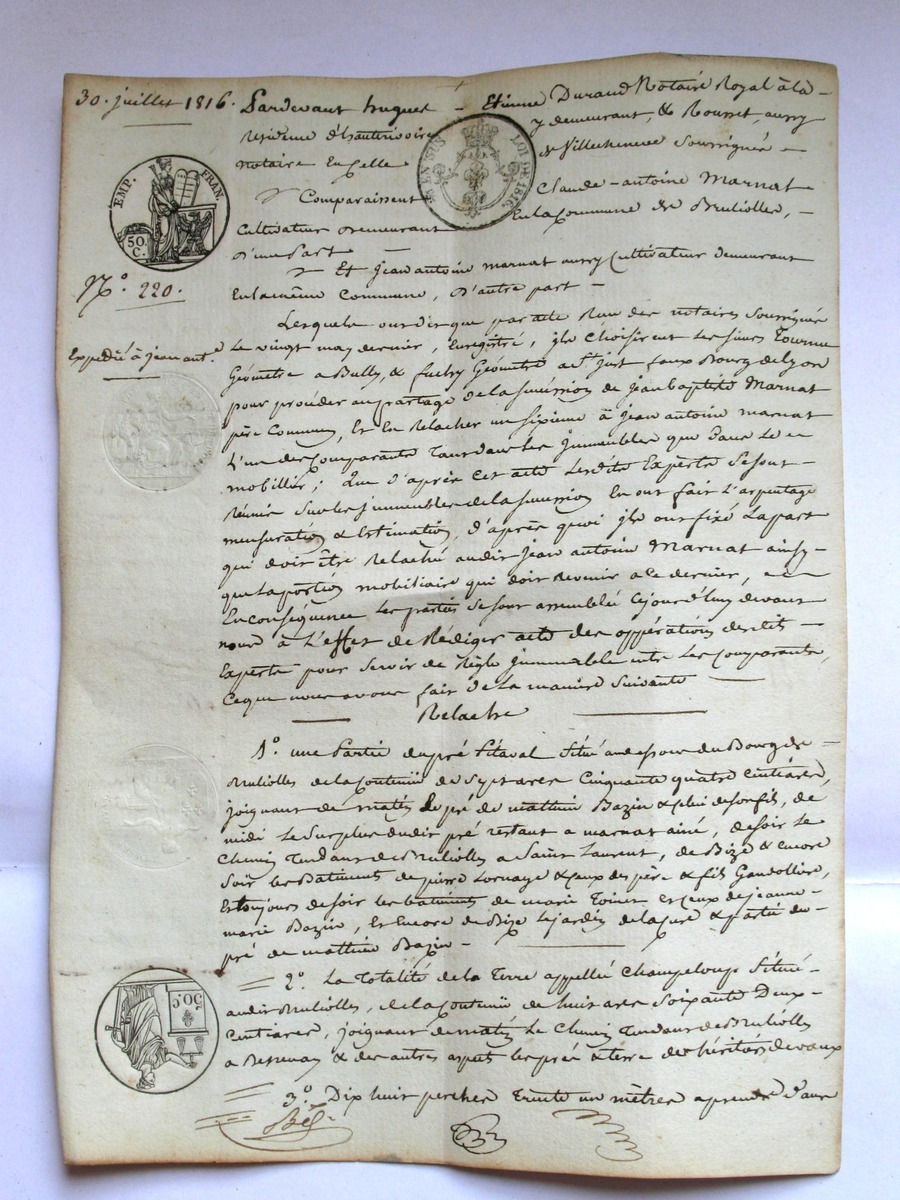 30. juillet 1816.
Pardevant hugues - Etienne Durand Notaire Royal à la -
Residence d'hauterivoire y demeurant, & Rousset, aussy
notaire En celle de Villecheneve Soussignés -
EMP. FRAN.
50 C.
EN SUS
LOI DE 1816.
Comparaissent Claude - antoine Marnat
Cultivateur demeurant En la Commune de Brulioller, -
d'une Part -
Et jean antoine marnat aussy Cultivateur demeurant
En la même Commune, d'autre part -
N°. 220.
Expedié à jean ant.e
Lesquels ont dit que par acte Reçu des notaires Soussignés
Le vingt may dernier, Enregistré, ils Choisirent les sieurs Tourme
Géometre a Bully, & Géometre a St. just faux Bourg de Lyon
pour proceder au partage de la succession de jean Baptiste Marnat
père Commun, Et En Relacher un sixieme à jean antoine marnat
L'un des Comparants Tant dans les jmmeubles que Dans le -
mobillier; Que d'après cet acte lesdits Experts se sont -
Réunis Sur les jmmeubles de la succession En ont fait L'arpentage
mensuration & Estimation, d'après quoi jls ont fixé la part
qui doit être Relaché audit jean antoine Marnat ainsy -
que la portion mobiliaire qui doit Revenir a ce dernier, -
En conséquence les parties se sont assemblé Cejourd'huy devant
nous à L'effet de Rédiger acte des oppérations desdits -
Experts pour Servir de Règle jmmuable entre les Comparants,
Ceque nous avons fait de la maniere Suivante
Relache
1°. une Partie du pré Pitaval Situé au dessous du Bourg de -
Bruliolles de la Contenüe de Sept ares Cinquante quatre Centiares,
joignant de matin Le pré de mathieu Bazin & celui de son fils, de
midi le Surplus dudit pré restant a marnat ainé, de soir le
Chemin Tendant de Bruliolles a Saint Laurent, de Bize & encore
Soir les Batiments de pierre Lornage & ceux des père & fils Gandollière,
Et toujours de soir les batiments de marie Toinet et ceux de jeanne -
marie Bazin, et Encore de Bize le jardin de la Cure & partie du -
pré de mathieu Bazin -
2°. La Totalité de la Terre appellée Champeloup Située -
audit Bruliolles, de la Contenüe de huit ares Soixante Deux -
Centiares, joignant de matin le Chemin Tendant de Bruliolles
a Bessenay & des autres aspects les prés & terre des héritiers devaux
50 C.
3°. Dix huit perches Trente un mètres a prendre dans